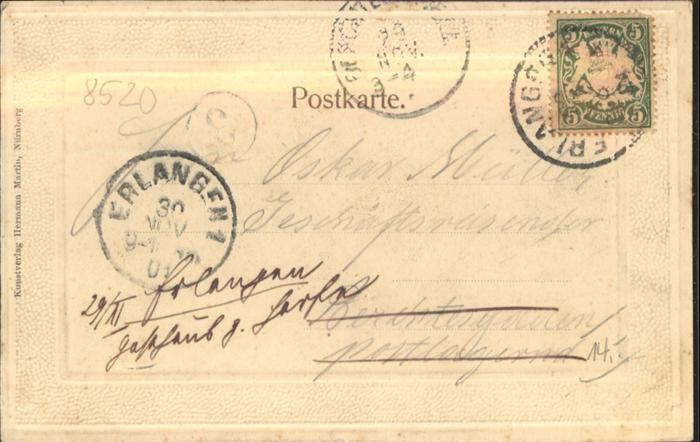 8520
Postkarte.
5 5
5 PFENNIG 5
ERLANGEN
Oskar Müller
Geschäftsreisender
ERLANGEN 1
30
NOV
01
29/XI Erlangen
Gasthaus z.
Berchtesgaden
postlagernd
14.-
Kunstverlag Hermann Martin, Nürnberg